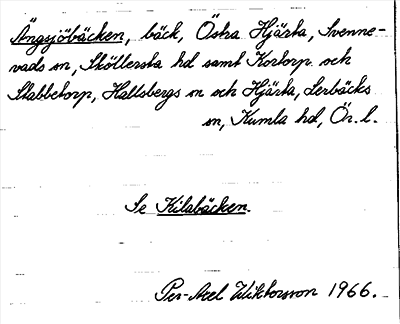 Ängsjöbäcken, bäck, Östra Hjärta, Svenne-
vads sn, Sköllersta hd samt Kortorp och
Stabbetorp, Hallsbergs sn och Hjärta, Lerbäcks
sn, Kumla hd, Ör. l.
Se Kilabäcken.
Per-Axel Wiktorsson 1966.